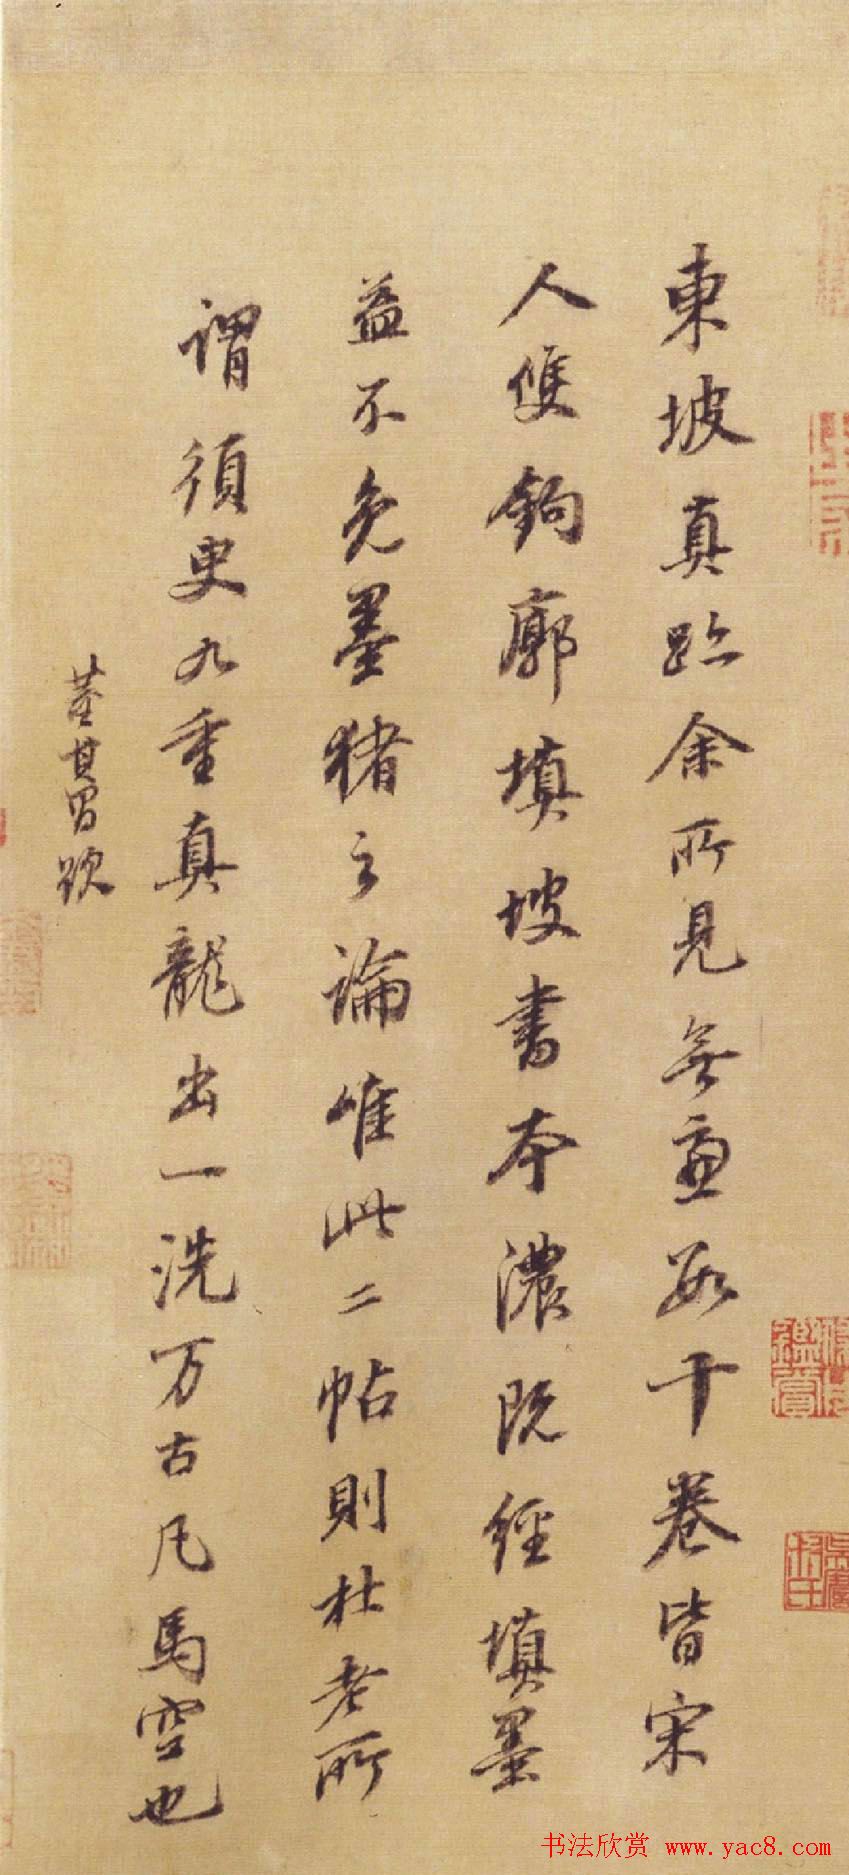 東坡真跡余所見無慮數十卷皆宋
人雙鉤廓填坡書本濃既經填墨
益不免墨猪之論唯此二帖則杜老所
謂須臾九重真龍出一洗万古凡馬空也
董其昌題
书法欣赏 www.yac8.com